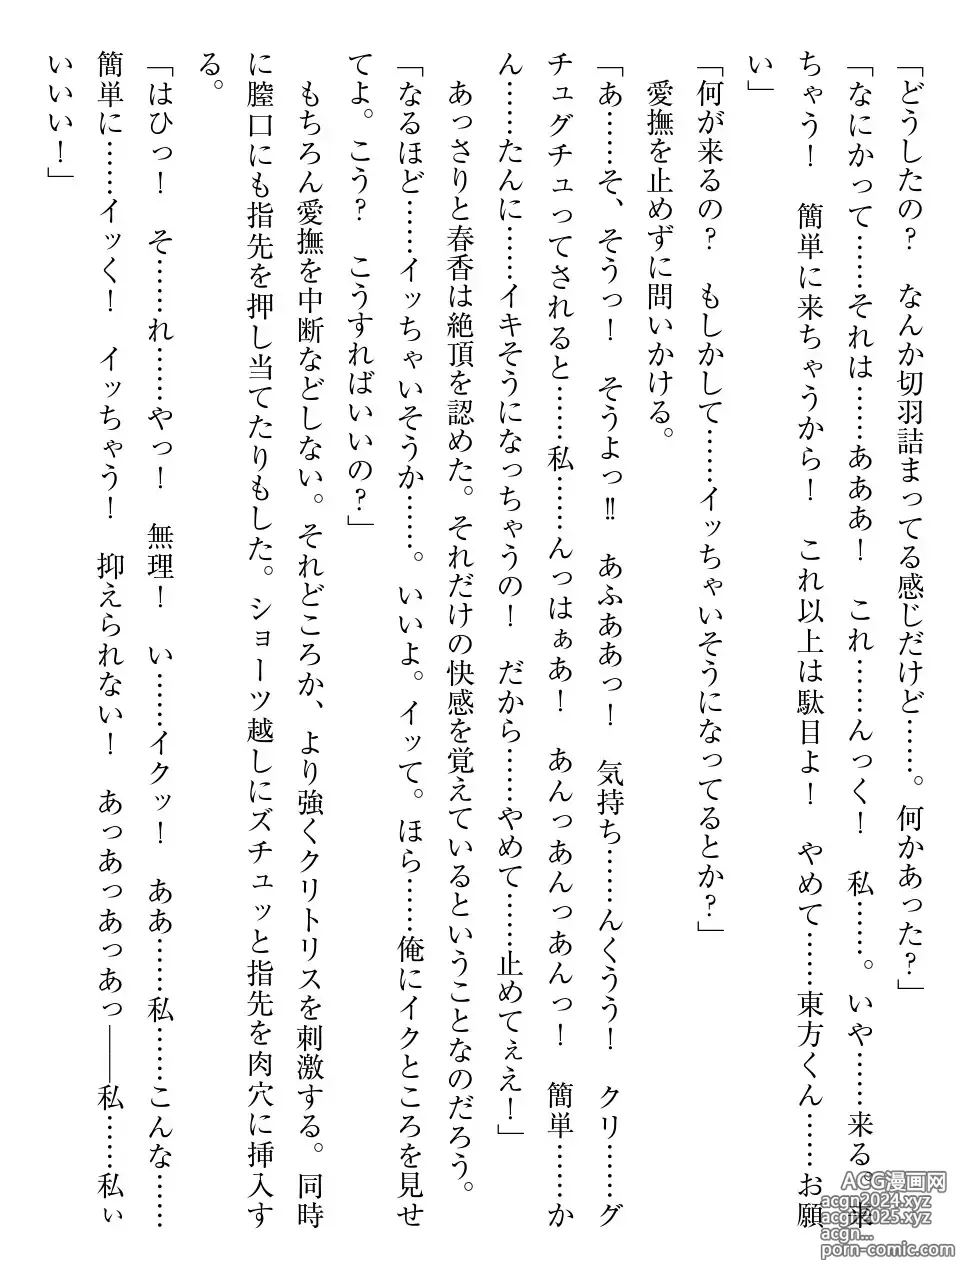 「どうしたの？　なんか切羽詰まってる感じだけど……。何かあった？」
「なにかって……それは……あああ！　これ……んっく！　私……。いや……来る。来
ちゃう！　簡単に来ちゃうから！　これ以上は駄目よ！　やめて……東方くん……お願
い」
「何が来るの？　もしかして……イッちゃいそうになってるとか？」
　愛撫を止めずに問いかける。
「あ……そ、そうっ！　そうよっ‼　あふああっ！　気持ち……んくうう！　クリ……グ
チュグチュってされると……私……んっはぁあ！　あんっあんっあんっ！　簡単……か
ん……たんに……イキそうになっちゃうの！　だから……やめて……止めてぇえ！」
　あっさりと春香は絶頂を認めた。それだけの快感を覚えているということなのだろう。
「なるほど……イッちゃいそうか……。いいよ。イッて。ほら……俺にイクところを見せ
てよ。こう？　こうすればいいの？」
　もちろん愛撫を中断などしない。それどころか、より強くクリトリスを刺激する。同時
に膣口にも指先を押し当てたりもした。ショーツ越しにズチュッと指先を肉穴に挿入す
る。
「はひっ！　そ……れ……やっ！　無理！　い……イクッ！　ああ……私……こんな……
簡単に……イッく！　イッちゃう！　抑えられない！　あっあっあっあっ――私……私ぃ
いいい！」
ACG漫画网
acgn2024.xyz
acgn2025.xyz
acgn...
porn-comic.com